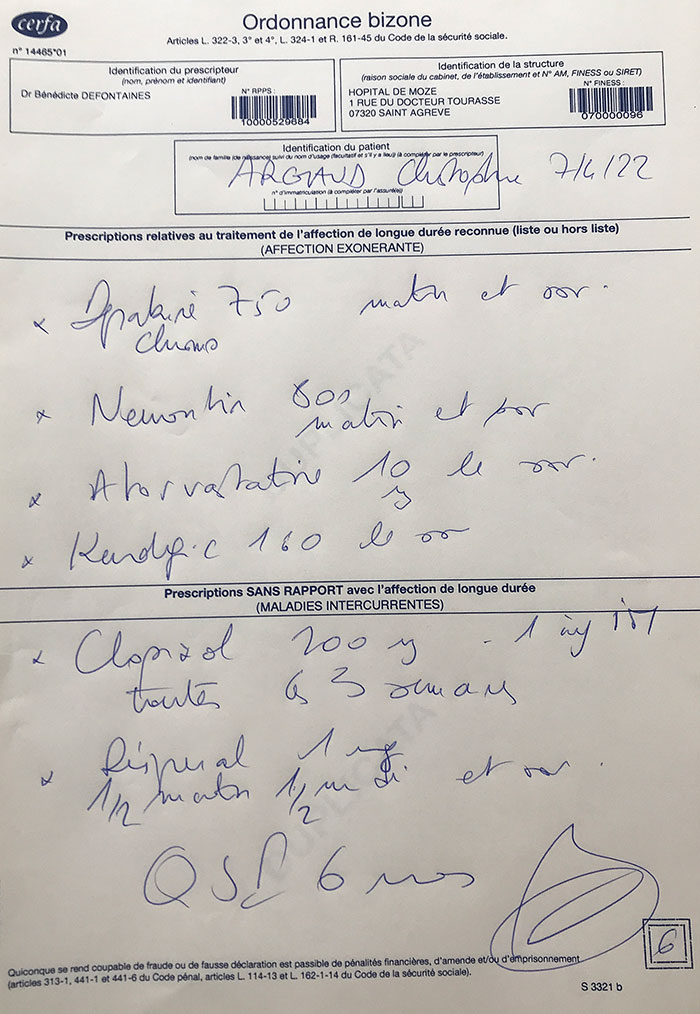 cerfa
n° 14465*01
Ordonnance bizone
Articles L. 322-3, 3° et 4°, L. 324-1 et R. 161-45 du Code de la sécurité sociale.
Identification du prescripteur
(nom, prénom et identifiant)
Dr Bénédicte DEFONTAINES
N° RPPS :
10000529684
Identification de la structure
(raison sociale du cabinet, de l'établissement et N° AM, FINESS ou SIRET)
HOPITAL DE MOZE
1 RUE DU DOCTEUR TOURASSE
07320 SAINT AGREVE
N° FINESS :
070000096
Identification du patient
(nom de famille (de naissance) suivi du nom d'usage (facultatif et s'il y a lieu)) (à compléter par le prescripteur)
ARGAUD Christophe 7/4/22
n° d'immatriculation (à compléter par l'assuré(e))
Prescriptions relatives au traitement de l'affection de longue durée reconnue (liste ou hors liste)
(AFFECTION EXONERANTE)
x 750 matin et soir.
Chrono
x 800
matin et soir
x Atorvastatine 10 le soir.
x 160 le soir
DUPLICATA
Prescriptions SANS RAPPORT avec l'affection de longue durée
(MALADIES INTERCURRENTES)
x Clopixol 200 mg - 1 inj IM
toutes les 3 semaines
x 1 mg
1/2 matin 1/2 midi et soir.
DUPLICATA
QSP 6 mois
6
Quiconque se rend coupable de fraude ou de fausse déclaration est passible de pénalités financières, d'amende et/ou d'emprisonnement
(articles 313-1, 441-1 et 441-6 du Code pénal, articles L. 114-13 et L. 162-1-14 du Code de la sécurité sociale).
S 3321 b